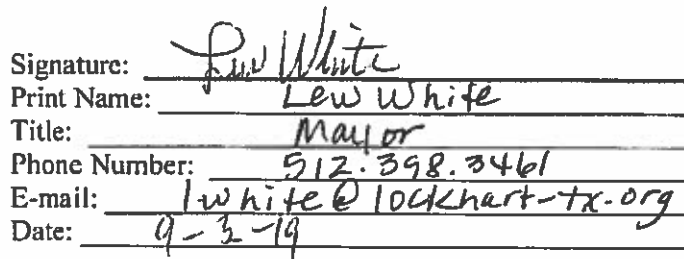 Signature: Lew White
Print Name: Lew White
Title: Mayor
Phone Number: 512.398.3461
E-mail: lwhite@lockhart-tx.org
Date: 9-3-19